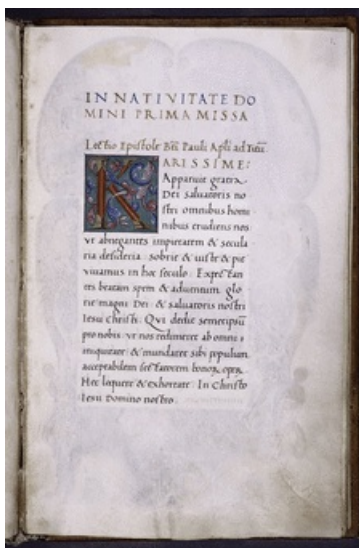 IN NATIVITATE DO
MINI PRIMA MISSA
Lectio Epistole Bti Pauli Apli ad Titū
KARISSIME:
Apparuit gratia
Dei salvatoris no
stri omnibus homi
nibus erudiens nos
ut abnegantes impietatem & secula
ria desideria sobrie & iuste & pie
vivamus in hoc seculo. Expectan
tes beatam spem & adventum glo
rie magni Dei & salvatoris nostri
Iesu Christi. Qui dedit semetipsū
pro nobis ut nos redimeret ab omni
iniquitate & mundaret sibi populum
acceptabilem sectatorem bonorū operū
Hec loquere & exhortare In Christo
Iesu Domino nostro.